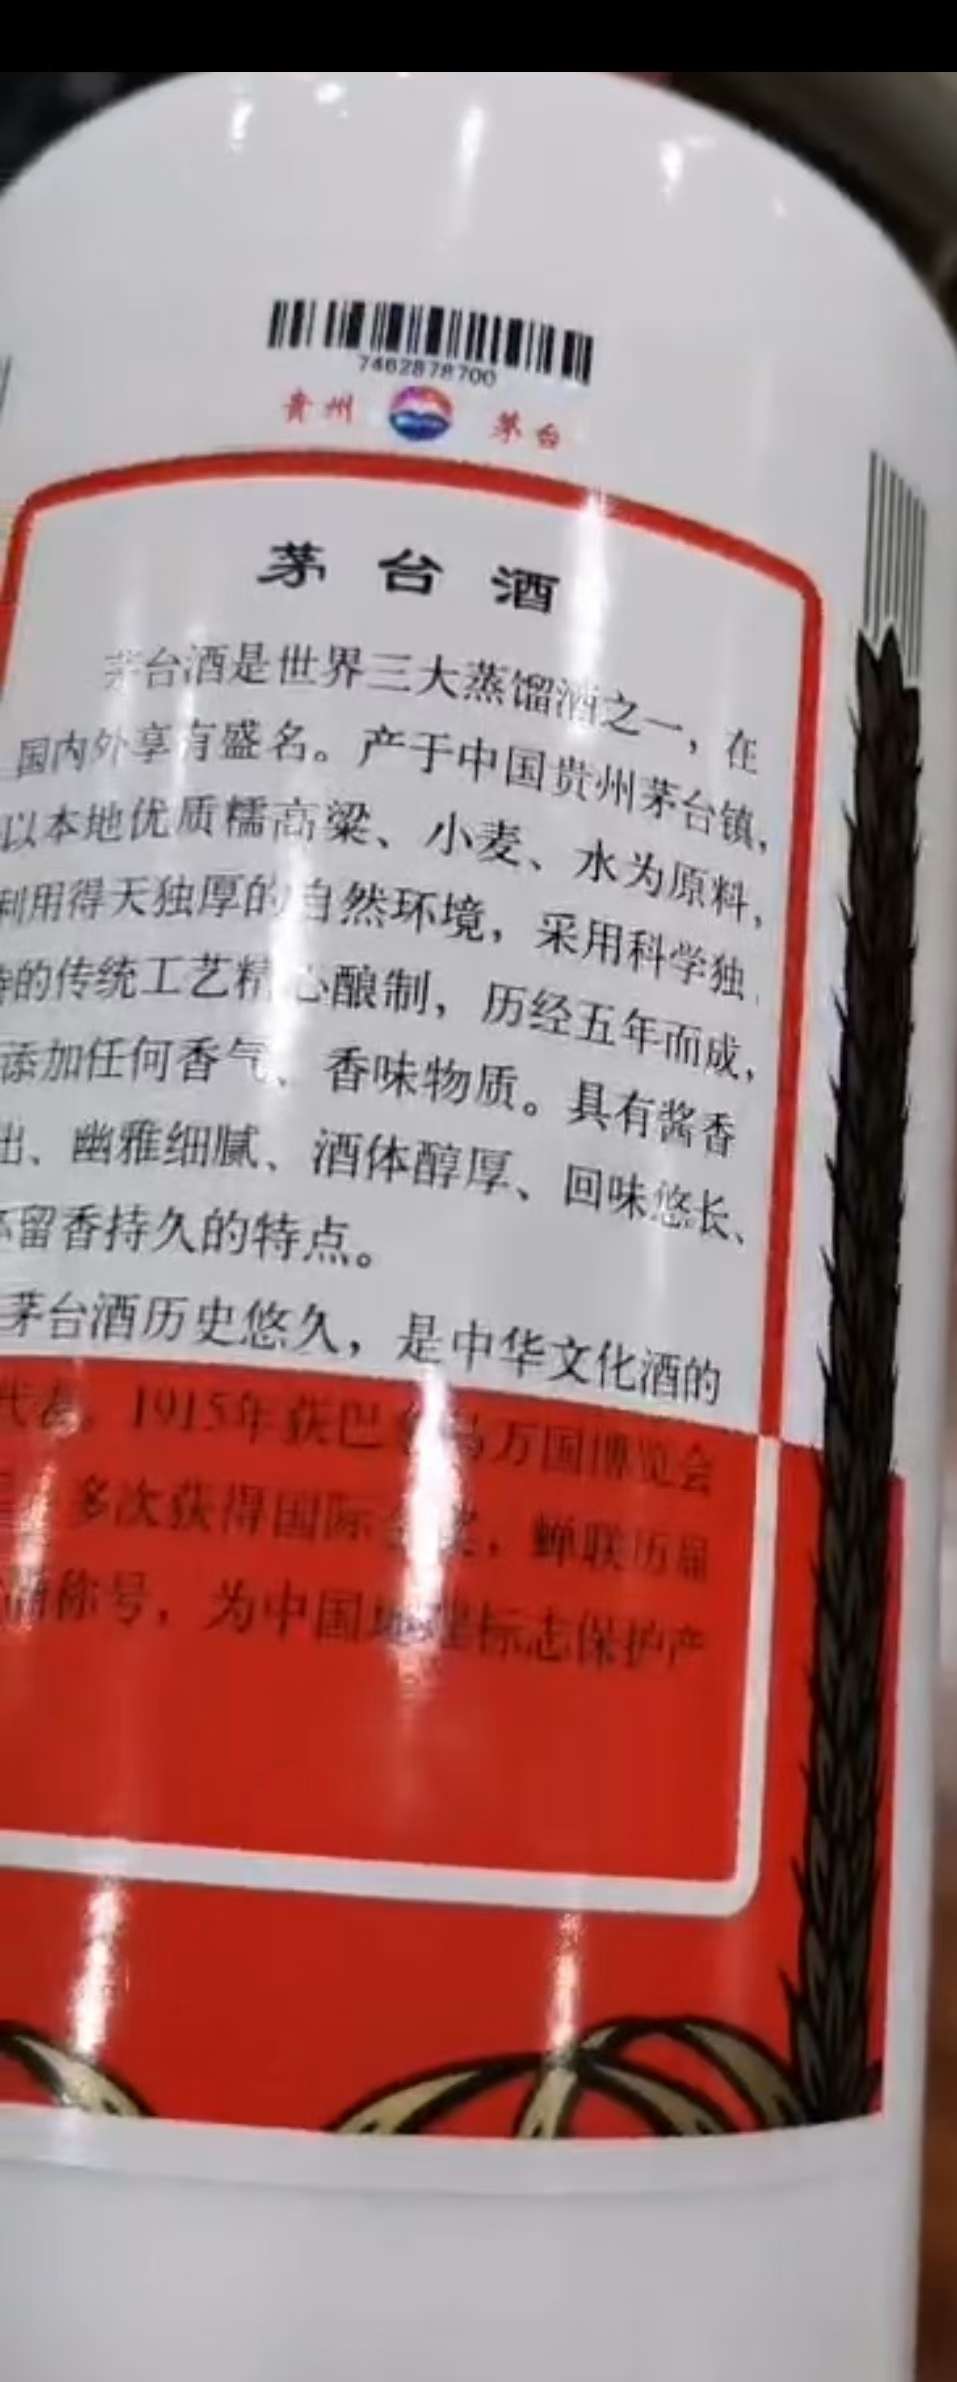 7462878700
贵州 茅台
茅台酒
茅台酒是世界三大蒸馏酒之一，在
国内外享有盛名。产于中国贵州茅台镇，
以本地优质糯高粱、小麦、水为原料，
利用得天独厚的自然环境，采用科学独
的传统工艺精心酿制，历经五年而成，
添加任何香气、香味物质。具有酱香
出、幽雅细腻、酒体醇厚、回味悠长、
留香持久的特点。
茅台酒历史悠久，是中华文化酒的
代表。1915年获巴拿马万国博览会
多次获得国际金奖，蝉联历届
酒称号，为中国地理标志保护产